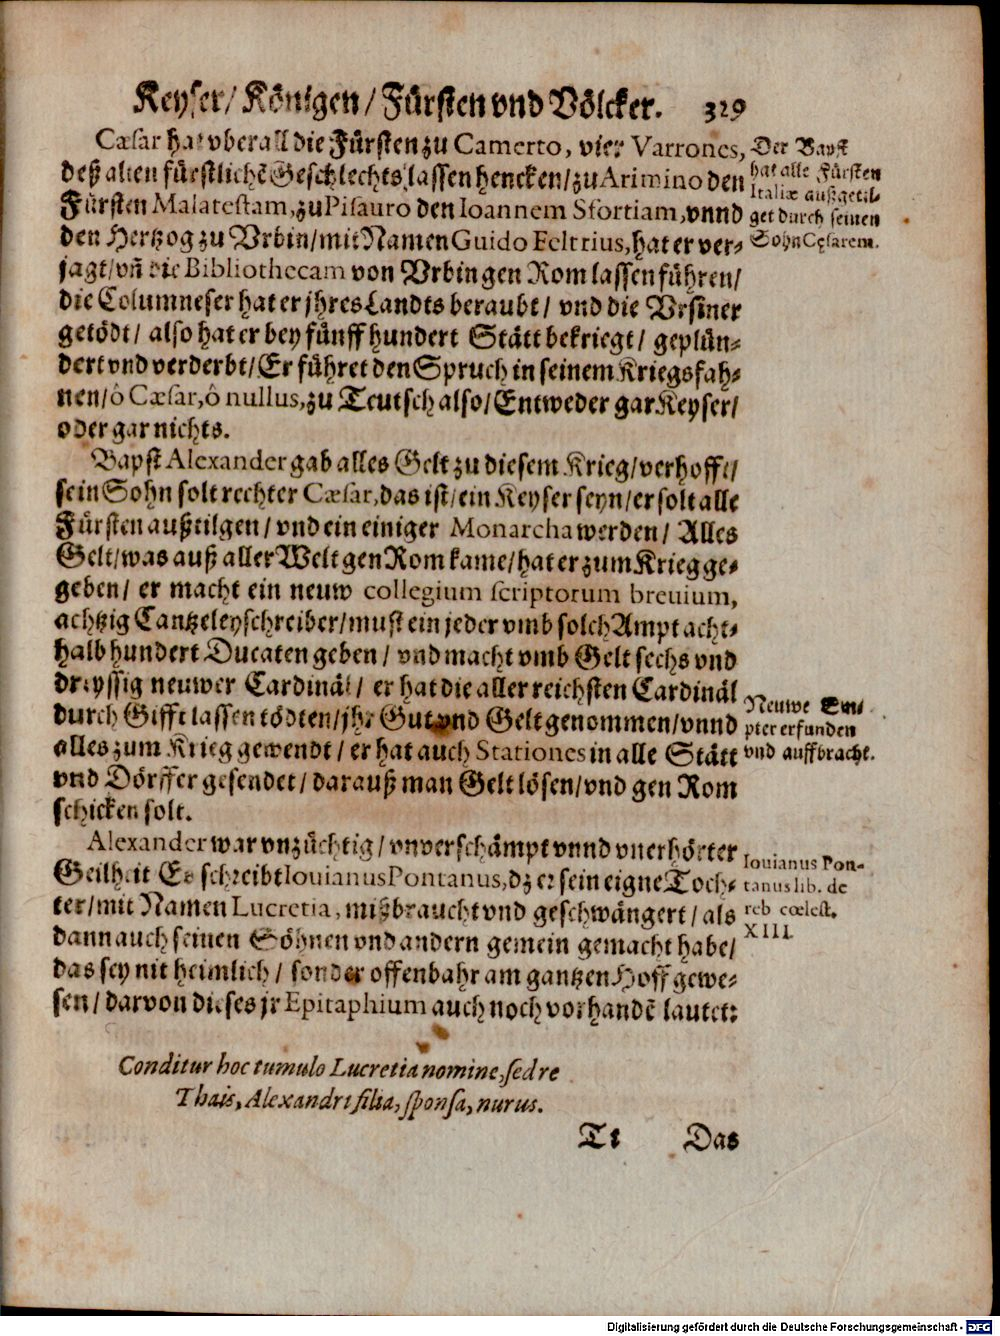 Keyser/ Königen/ Fürsten vnd Völcker. 329
Cæsar hat vberall die Fürsten zu Camerto, vier Varrones,
deß alten fürstlichē Geschlechts, lassen hencken/ zu Arimino den
Fürsten Malatestam, zu Pisauro den Ioannem Sfortiam, vnnd
den Hertzog zu Vrbin/ mit Namen Guido Feltrius, hat er ver-
jagt/ vñ die Bibliothecam von Vrbin gen Rom lassen führen/
die Columneser hat er jhres Landts beraubt/ vnd die Vrsiner
getödt/ also hat er bey fünff hundert Stätt bekriegt/ geplün-
dert vnd verderbt/ Er führet den Spruch in seinem Kriegsfah-
nen/ ô Cæsar, ô nullus, zu Teutsch also/ Entweder gar Keyser/
oder gar nichts.
Der Bapst
hat alle Fürsten
Italiæ außgetil-
get durch seinen
Sohn Cęsarem.
Bapst Alexander gab alles Gelt zu diesem Krieg/ verhofft/
sein Sohn solt rechter Cæsar, das ist/ ein Keyser seyn/ er solt alle
Fürsten außtilgen/ vnd ein einiger Monarcha werden/ Alles
Gelt/ was auß aller Welt gen Rom kame/ hat er zum Krieg ge-
geben/ er macht ein neuw collegium scriptorum breuium,
achtzig Cantzeleyschreiber/ must ein jeder vmb solch Ampt acht-
halb hundert Ducaten geben/ vnd macht vmb Gelt sechs vnd
dreyssig neuwer Cardinäl/ er hat die aller reichsten Cardinäl
durch Gifft lassen tödten/ jhr Gut vnd Gelt genommen/ vnnd
alles zum Krieg gewendt/ er hat auch Stationes in alle Stätt
vnd Dörffer gesendet/ darauß man Gelt lösen/ vnd gen Rom
schicken solt.
Neuwe Em-
pter erfunden
vnd auffbracht.
Alexander war vnzüchtig/ vnverschämpt vnnd vnerhörter
Geilheit Es schreibt Iouianus Pontanus, dz er sein eigne Toch-
ter/ mit Namen Lucretia, mißbraucht vnd geschwängert/ als
dann auch seinen Söhnen vnd andern gemein gemacht habe/
das sey nit heimlich/ sonder offenbahr am gantzen Hoff gewe-
sen/ darvon dieses jr Epitaphium auch noch vorhandē lautet:
Iouianus Pon-
tanus lib. de
reb cœlest.
XIII.
Conditur hoc tumulo Lucretia nomine, sed re
Thais, Alexandri filia, sponsa, nurus.
Tt Das
Digitalisierung gefördert durch die Deutsche Forschungsgemeinschaft - DFG